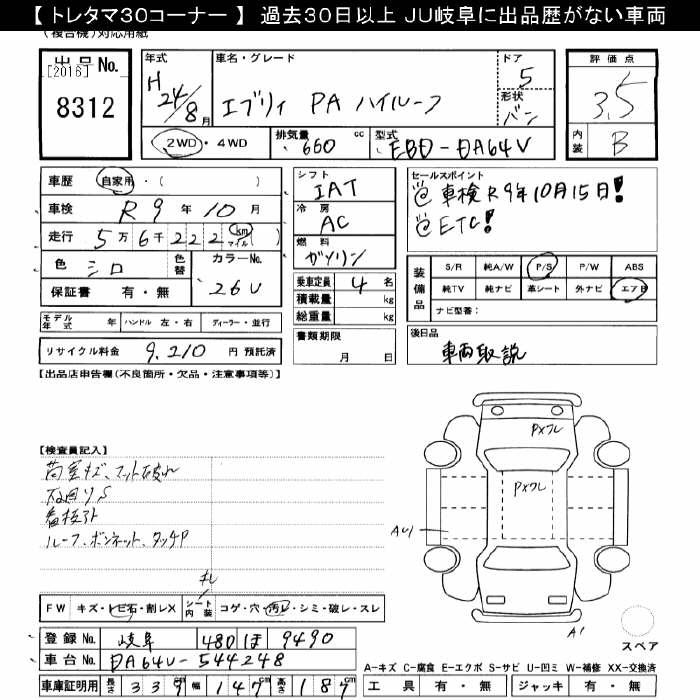 【 トレタマ30コーナー 】 過去30日以上 JU岐阜に出品歴がない車両
(複合機)対応用紙
出品No.
[2016]
8312
年式
H 24/8月
車名・グレード
エブリィ PA ハイルーフ
ドア
5
形状
バン
評価点
3.5
内装
B
2WD・4WD
排気量 660 cc
型式 EBD-DA64V
車歴 自家用・( )
車検 R 9年 10月
走行 5万 6千 222 (km マイル)
色 シロ
色替
カラーNo.
26U
保証書 有・無
シフト
IAT
冷房
AC
燃料
ガソリン
乗車定員 4名
積載量 kg
総重量 kg
セールスポイント
@車検R9年10月15日!
@ETC!
装備品
S/R 純A/W P/S P/W ABS
純TV 純ナビ 革シート 外ナビ エアB
ナビ型番:
モデル年式 年
ハンドル 左・右
ディーラー・並行
リサイクル料金 9,210 円 預託済
書類期限
月 日
後日品
車両取説
【出品店申告欄(不良箇所・欠品・注意事項等)】
【検査員記入】
荷室キズ、マット破れ
下回りS
看板跡
ルーフ、ボンネット、タッチP
PXワレ
PXワレ
AU1
A1
スペア
FW キズ・トビ石・割レX
シート内装 コゲ・穴・汚レ・シミ・破レ・スレ
登録No. 岐阜 480 ほ 9490
車台No. DA64V-544248
A-キズ C-腐食 E-エクボ S-サビ U-凹ミ W-補修 XX-交換済
車庫証明用 長さ 339cm 幅 147cm 高さ 187cm
工具 有・無 ジャッキ 有・無